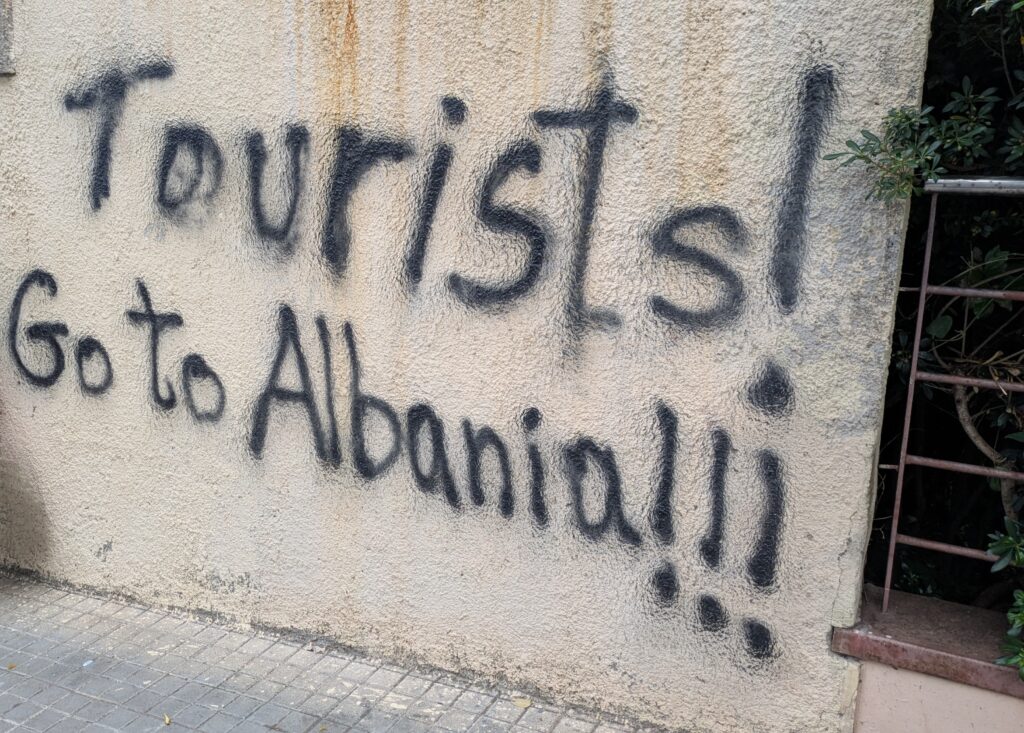 Tourists!
Go to Albania!!!